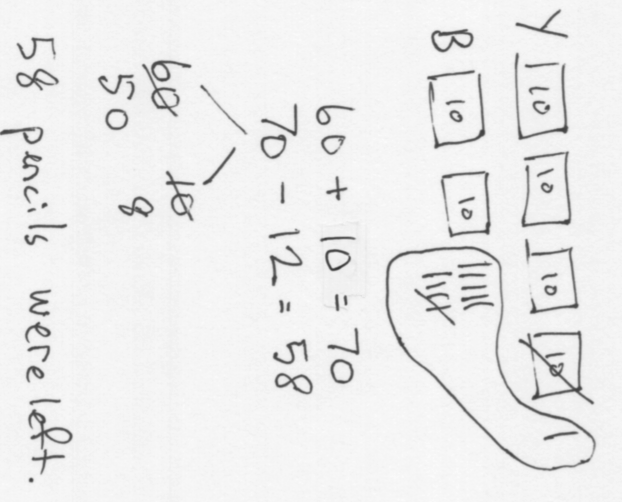 Y 10 10 10 10
B 10 10
60 + 10 = 70
70 - 12 = 58
60 10
50 8
58 pencils were left.